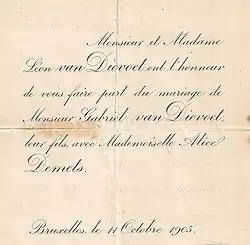 Monsieur et Madame
Léon van Dievoet ont l'honneur
de vous faire part du mariage de
Monsieur Gabriel van Dievoet,
leur fils, avec Mademoiselle Alice
Demets.
Bruxelles, le 11 Octobre 1905.